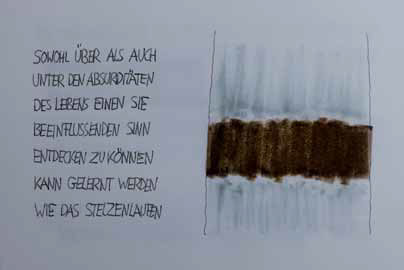 SOWOHL ÜBER ALS AUCH
UNTER DEN ABSURDITÄTEN
DES LEBENS EINEN SIE
BEEINFLUSSENDEN SINN
ENTDECKEN ZU KÖNNEN
KANN GELERNT WERDEN
WIE DAS STELZENLAUFEN